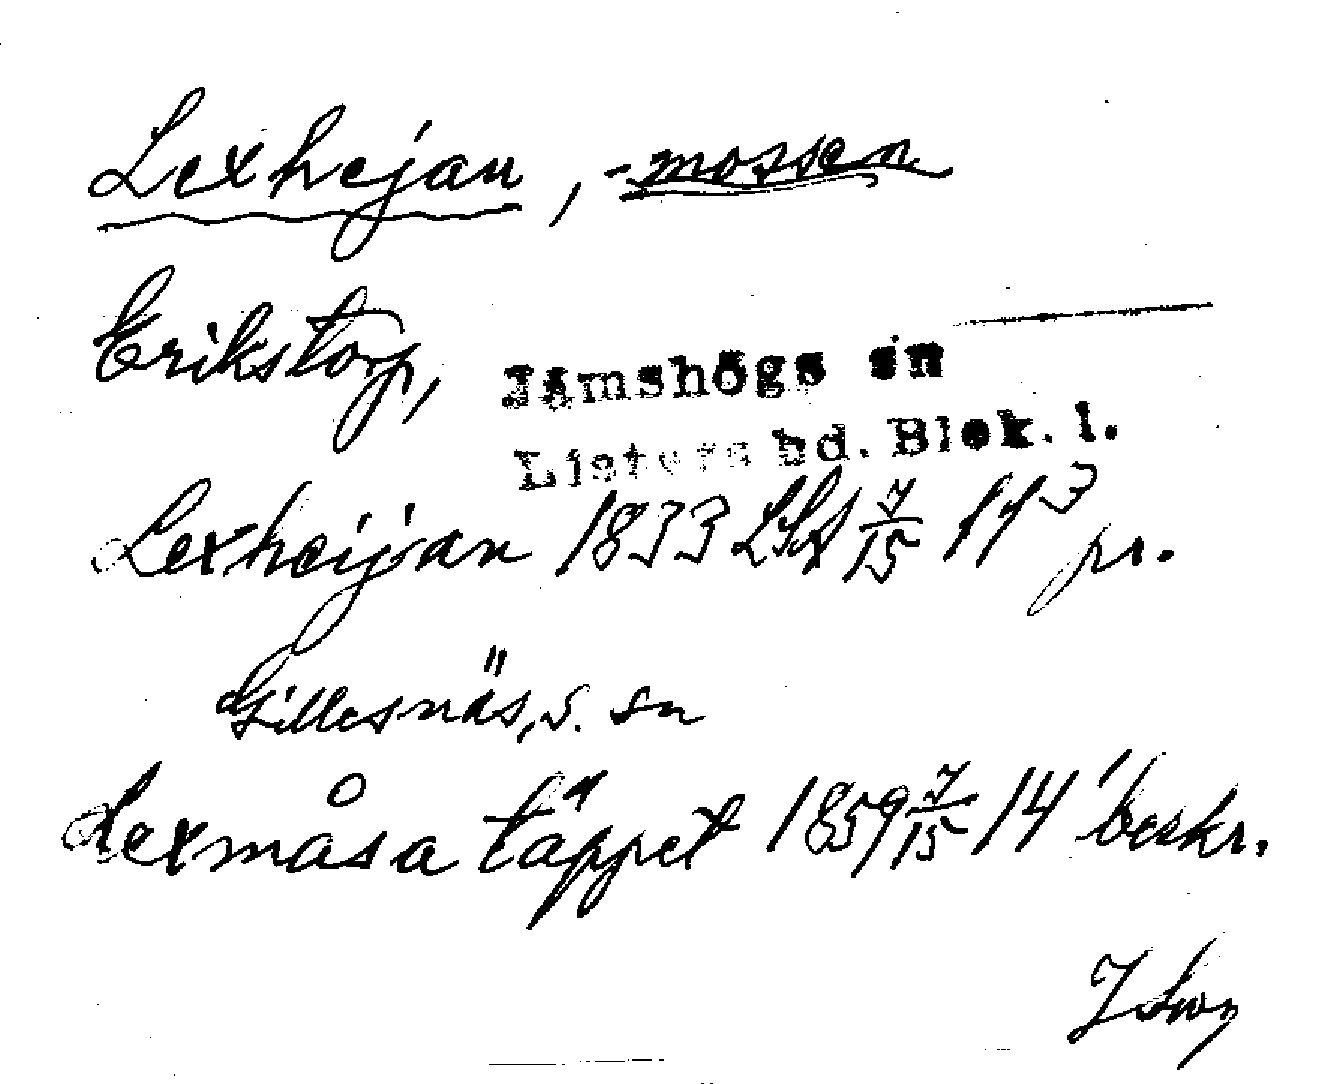 Lexhejan, -mossen
Erikstorp, Jämshögs sn
Listers hd. Blek. l.
Lexheijan 1833 LSA 7/15 11³ pr.
Gillesnäs, s. sn
Lexmåsa täppet 1859 7/15 14 beskr.